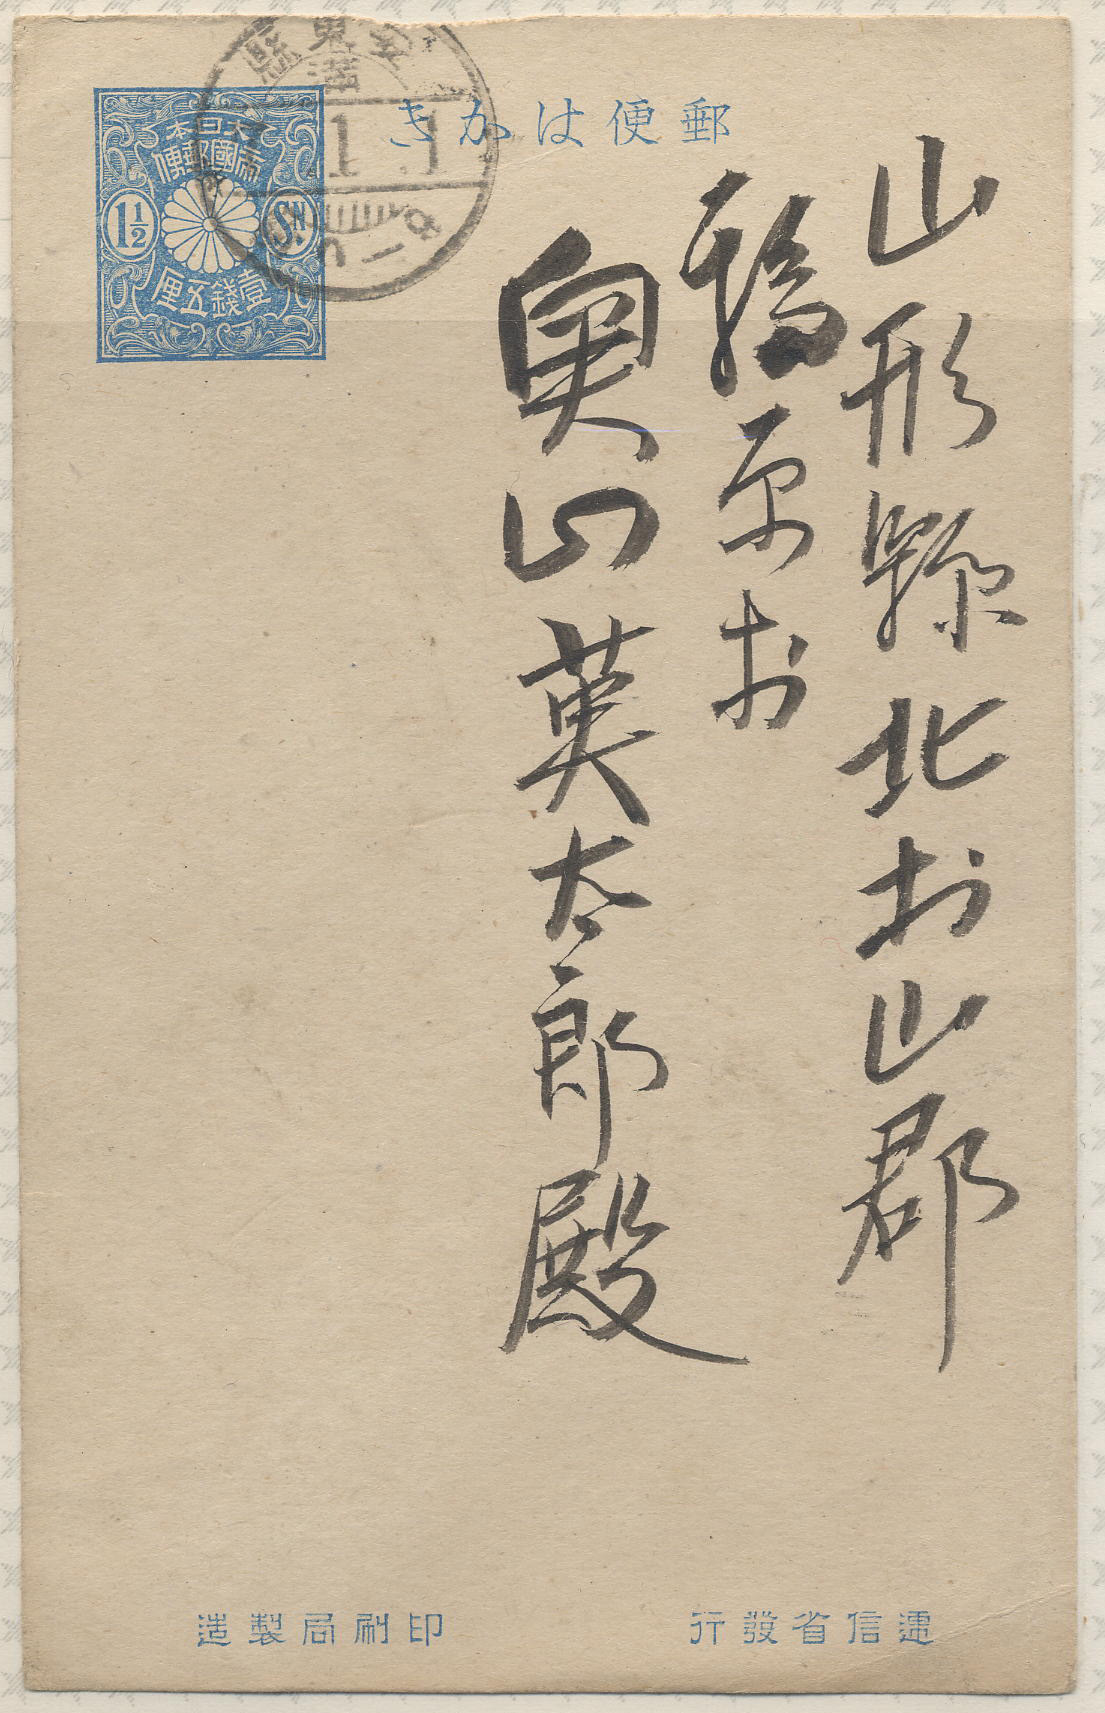 郵便はかき
大日本
帝國郵便
1½ SN.
壹錢五厘
安東縣
1.1
山形縣北村山郡
福原村
奥山英太郎殿
遞信省發行
印刷局製造